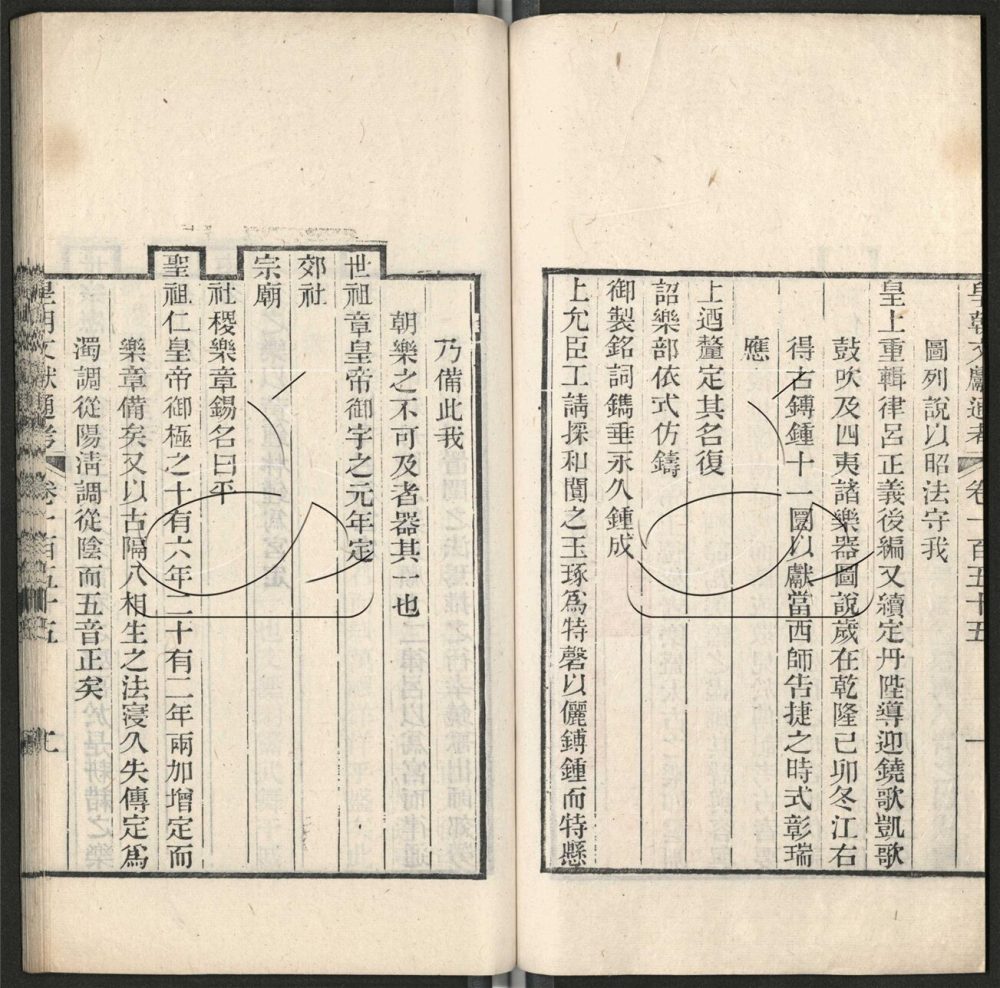 皇朝文獻通考 卷一百五十五 一
圖列說以昭法守我
皇上重輯律呂正義後編又續定丹陛導迎鐃歌凱歌
鼓吹及四夷諸樂器圖說歲在乾隆己卯冬江右
得古鎛鍾十一圜以獻當西師告捷之時式彰瑞
應
上迺釐定其名復
詔樂部依式仿鑄
御製銘詞鐫垂永久鍾成
上允臣工請採和闐之玉琢爲特磬以儷鎛鍾而特懸
乃備此我
朝樂之不可及者器其一也
世祖章皇帝御宇之元年定
郊社
宗廟
社稷樂章錫名曰平
聖祖仁皇帝御極之十有六年二十有二年兩加增定而
樂章備矣又以古隔八相生之法寖久失傳定爲
濁調從陽清調從陰而五音正矣
皇朝文獻通考 卷一百五十五